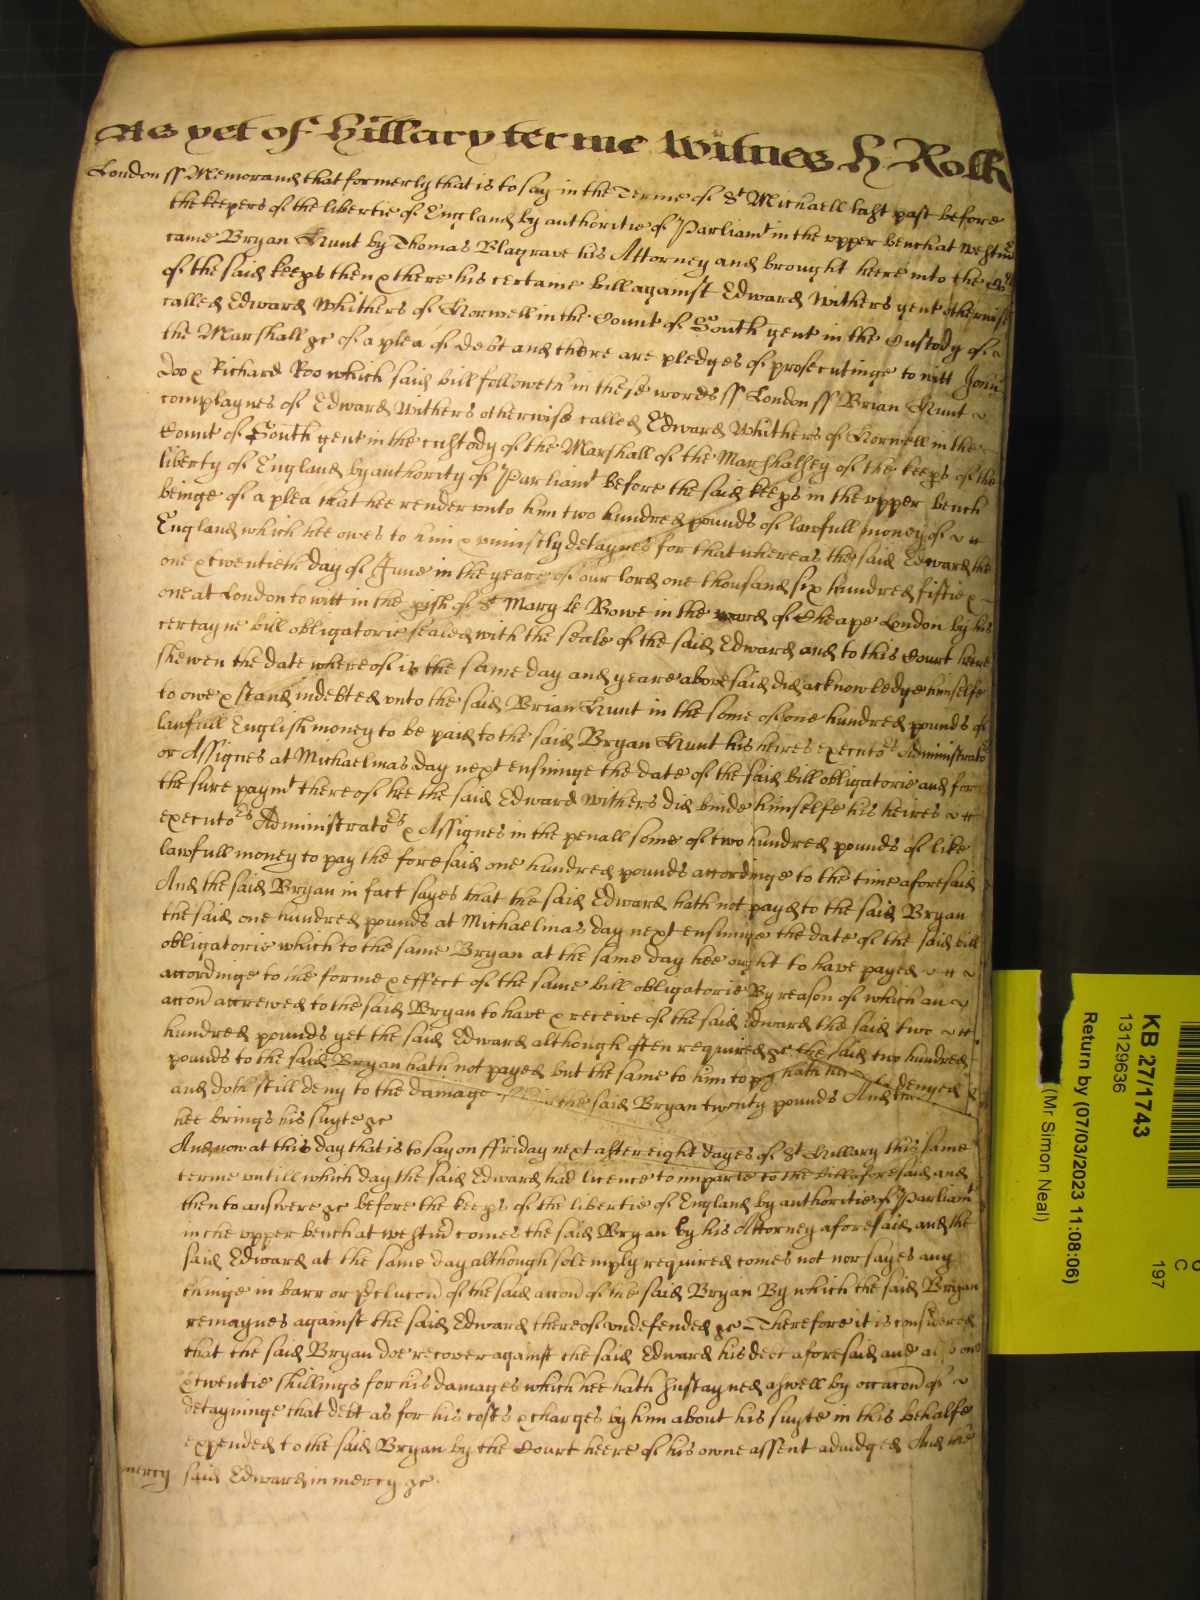 As yet of Hillary terme Witnes H Rolle
London ss Memorand that formerly that is to say in the Terme of St Michaell last past before
the keepers of the libertie of England by authoritie of Parliamt in the upper bench at Westmr
came Bryan Hunt by Thomas Blagrave his Attorney and brought heere into the Cort
of the said keeps then & there his certaine bill against Edward Withers gent otherwise
called Edward Whithers of Norwell in the Count of South gent in the Custody of
the Marshall &c of a plea of debt and there are pledges of prosecutinge to witt John
Doo & Richard Roo which said bill followeth in these words ss London ss Brian Hunt
complaynes of Edward Withers otherwise called Edward Whithers of Norwell in the
Count of South gent in the custody of the Marshall of the Marshalsey of the keeps of the
liberty of England by authority of Parliamt before the said keeps in the upper bench
beinge of a plea that hee render unto him two hundred pounds of lawfull money of
England which hee owes to him & uniustly detaynes for that whereas the said Edward the
one & twentieth day of June in the yeare of our lord one thousand six hundred fiftie &
one at London to witt in the pish of St Mary le Bowe in the ward of Cheape London by his
certayne bill obligatorie sealed with the seale of the said Edward and to this Court heere
shewen the date whereof is the same day and yeare abovesaid did acknowledge himselfe
to owe & stand indebted unto the said Brian Hunt in the some of one hundred pounds of
lawfull English money to be paid to the said Bryan Hunt his heires executors Administrators
or Assignes at Michaelmas day next ensuinge the date of the said bill obligatorie and for
the sure paymt thereof hee the said Edward Withers did binde himselfe his heires
executors Administrators & Assignes in the penall some of two hundred pounds of like
lawfull money to pay the foresaid one hundred pounds accordinge to the time aforesaid
And the said Bryan in fact sayes that the said Edward hath not payd to the said Bryan
the said one hundred pounds at Michaelmas day next ensuinge the date of the said bill
obligatorie which to the same Bryan at the same day hee ought to have payed
accordinge to the forme & effect of the same bill obligatorie By reason of which an
accon accrewed to the said Bryan to have & receive of the said Edward the said two
hundred pounds yet the said Edward although often required &c the said two hundred
pounds to the said Bryan hath not payed but the same to him to pay hath denyed &
and doth still deny to the damage of the said Bryan twenty pounds And
hee brings his suyte &c
And now at this day that is to say on ffriday next after eight dayes of St Hillary this same
terme untill which day the said Edward had licence to imparle to the bill aforesaid and
then to answere &c before the keeps of the libertie of England by authoritie of Parliamt
in the upper bench at Westmr comes the said Bryan by his Attorney aforesaid and the
said Edward at the same day although solemply required comes not nor sayes any
thinge in barr or preclucon of the said accon of the said Bryan By which the said Bryan
remaynes against the said Edward thereof undefended &c Therefore it is considered
that the said Bryan doe recover against the said Edward his debt aforesaid and also one
& twentie shillings for his damages which hee hath sustayned aswell by occacon of
detayninge that debt as for his costs & charges by him about his suyte in this behalfe
expended to the said Bryan by the Court heere of his owne assent adiudged And the
mercy said Edward in mercy &c
KB 27/1743
13129636
Return by (07/03/2023 11:08:06)
(Mr Simon Neal)
C
197